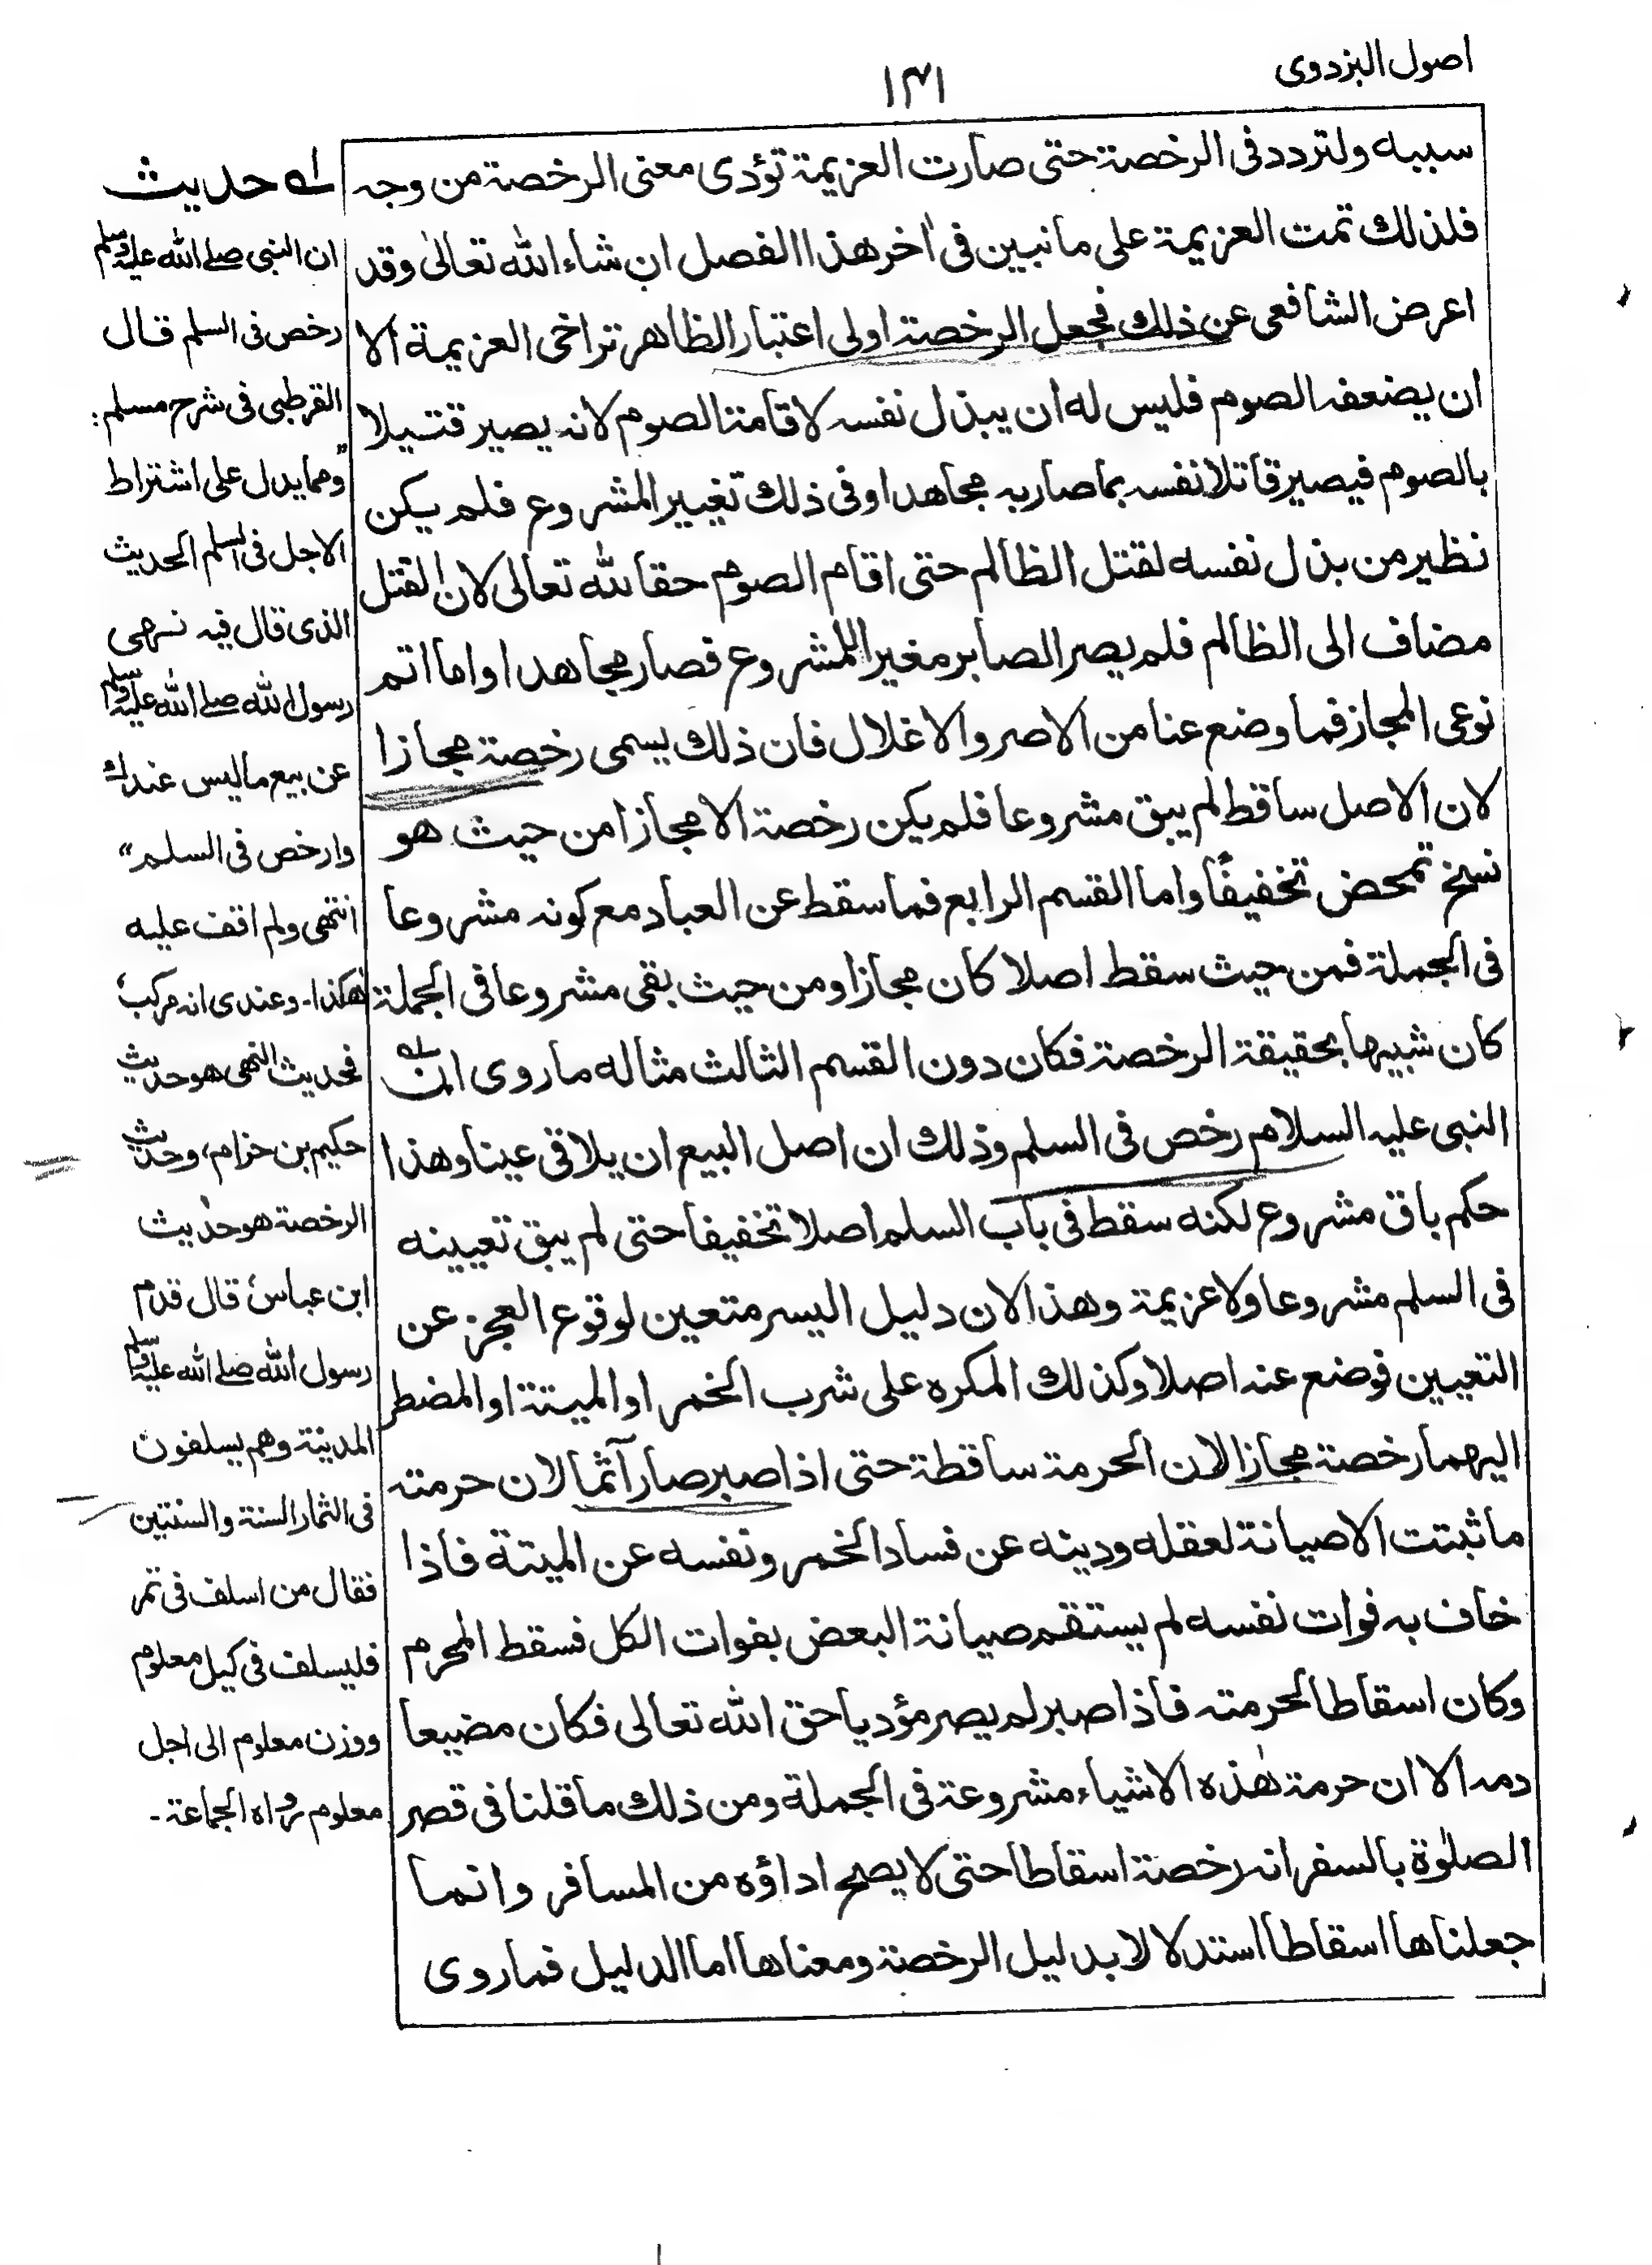 اصول البزدوی
۱۴۱
سببه ولتردد فی الرخصة حتی صارت العزیمة تؤدی معنی الرخصة من وجه
فلذلك تمت العزیمة علی ما نبین فی اٰخر هذا الفصل ان شاء الله تعالیٰ وقد
اعرض الشافعی عن ذلك فجعل الرخصة اولی اعتبار الظاهر تراخی العزیمة الا
ان یضعفه الصوم فلیس له ان یبذل نفسه لاقامة الصوم لانه یصیر قتیلا
بالصوم فیصیر قاتلا نفسه بما صار به مجاهدا وفی ذلك تغییر المشروع فلم یكن
نظیر من بذل نفسه لقتل الظالم حتی اقام الصوم حقا لله تعالی لان القتل
مضاف الی الظالم فلم یصر الصابر مغیرا للمشروع فصار مجاهدا واما اتم
نوعی المجاز فما وضع عنا من الاصر والاغلال فان ذلك یسمی رخصة مجازا
لان الاصل ساقط لم یبق مشروعا فلم یكن رخصة الا مجازا من حیث هو
نسخ تمحض تخفیفًا واما القسم الرابع فما سقط عن العباد مع كونه مشروعا
فی الجملة فمن حیث سقط اصلا كان مجازا ومن حیث بقی مشروعا فی الجملة
كان شبیها بحقیقة الرخصة فكان دون القسم الثالث مثاله ما روی ان
النبی علیه السلام رخص فی السلم وذلك ان اصل البیع ان یلاقی عینا وهذا
حكم باق مشروع لكنه سقط فی باب السلم اصلا تخفیفا حتی لم یبق تعیینه
فی السلم مشروعا ولا عزیمة وهذا لان دلیل الیسر متعین لوقوع العجز عن
التعیین فوضع عنه اصلا وكذلك المكره علی شرب الخمر او المیتة او المضطر
الیهما رخصة مجازا لان الحرمة ساقطة حتی اذا صبر صار آثما لان حرمته
ما ثبتت الا صیانة لعقله ودینه عن فساد الخمر ونفسه عن المیتة فاذا
خاف به فوات نفسه لم یستقم صیانة البعض بفوات الكل فسقط المحرم
وكان اسقاطا لحرمته فاذا صبر لم یصر مؤدیا حق الله تعالی فكان مضیعا
دمه الا ان حرمة هٰذه الاشیاء مشروعة فی الجملة ومن ذلك ما قلنا فی قصر
الصلوٰة بالسفر انه رخصة اسقاطا حتی لا یصح اداؤه من المسافر وانما
جعلناها اسقاطا استدلالا بدلیل الرخصة ومعناها اما الدلیل فما روی
له حدیث
ان النبی صلے الله علیه وسلم
رخص فی السلم قال
القرطبی فی شرح مسلم:
"ومما یدل علی اشتراط
الاجل فی السلم الحدیث
الذی قال فیه نهی
رسول الله صلے الله علیه وسلم
عن بیع ما لیس عندك
وارخص فی السلم"
انتهی ولم اقف علیه
هٰكذا۔ وعندی انه مركب
فحدیث النهی هو حدیث
حكیم بن حزام، وحدیث
الرخصة هو حدیث
ابن عباسؓ قال قدم
رسول الله صلے الله علیه وسلم
المدینة وهم یسلفون
فی الثمار السنة والسنتین
فقال من اسلف فی تمر
فلیسلف فی كیل معلوم
ووزن معلوم الی اجل
معلوم رواه الجماعة۔